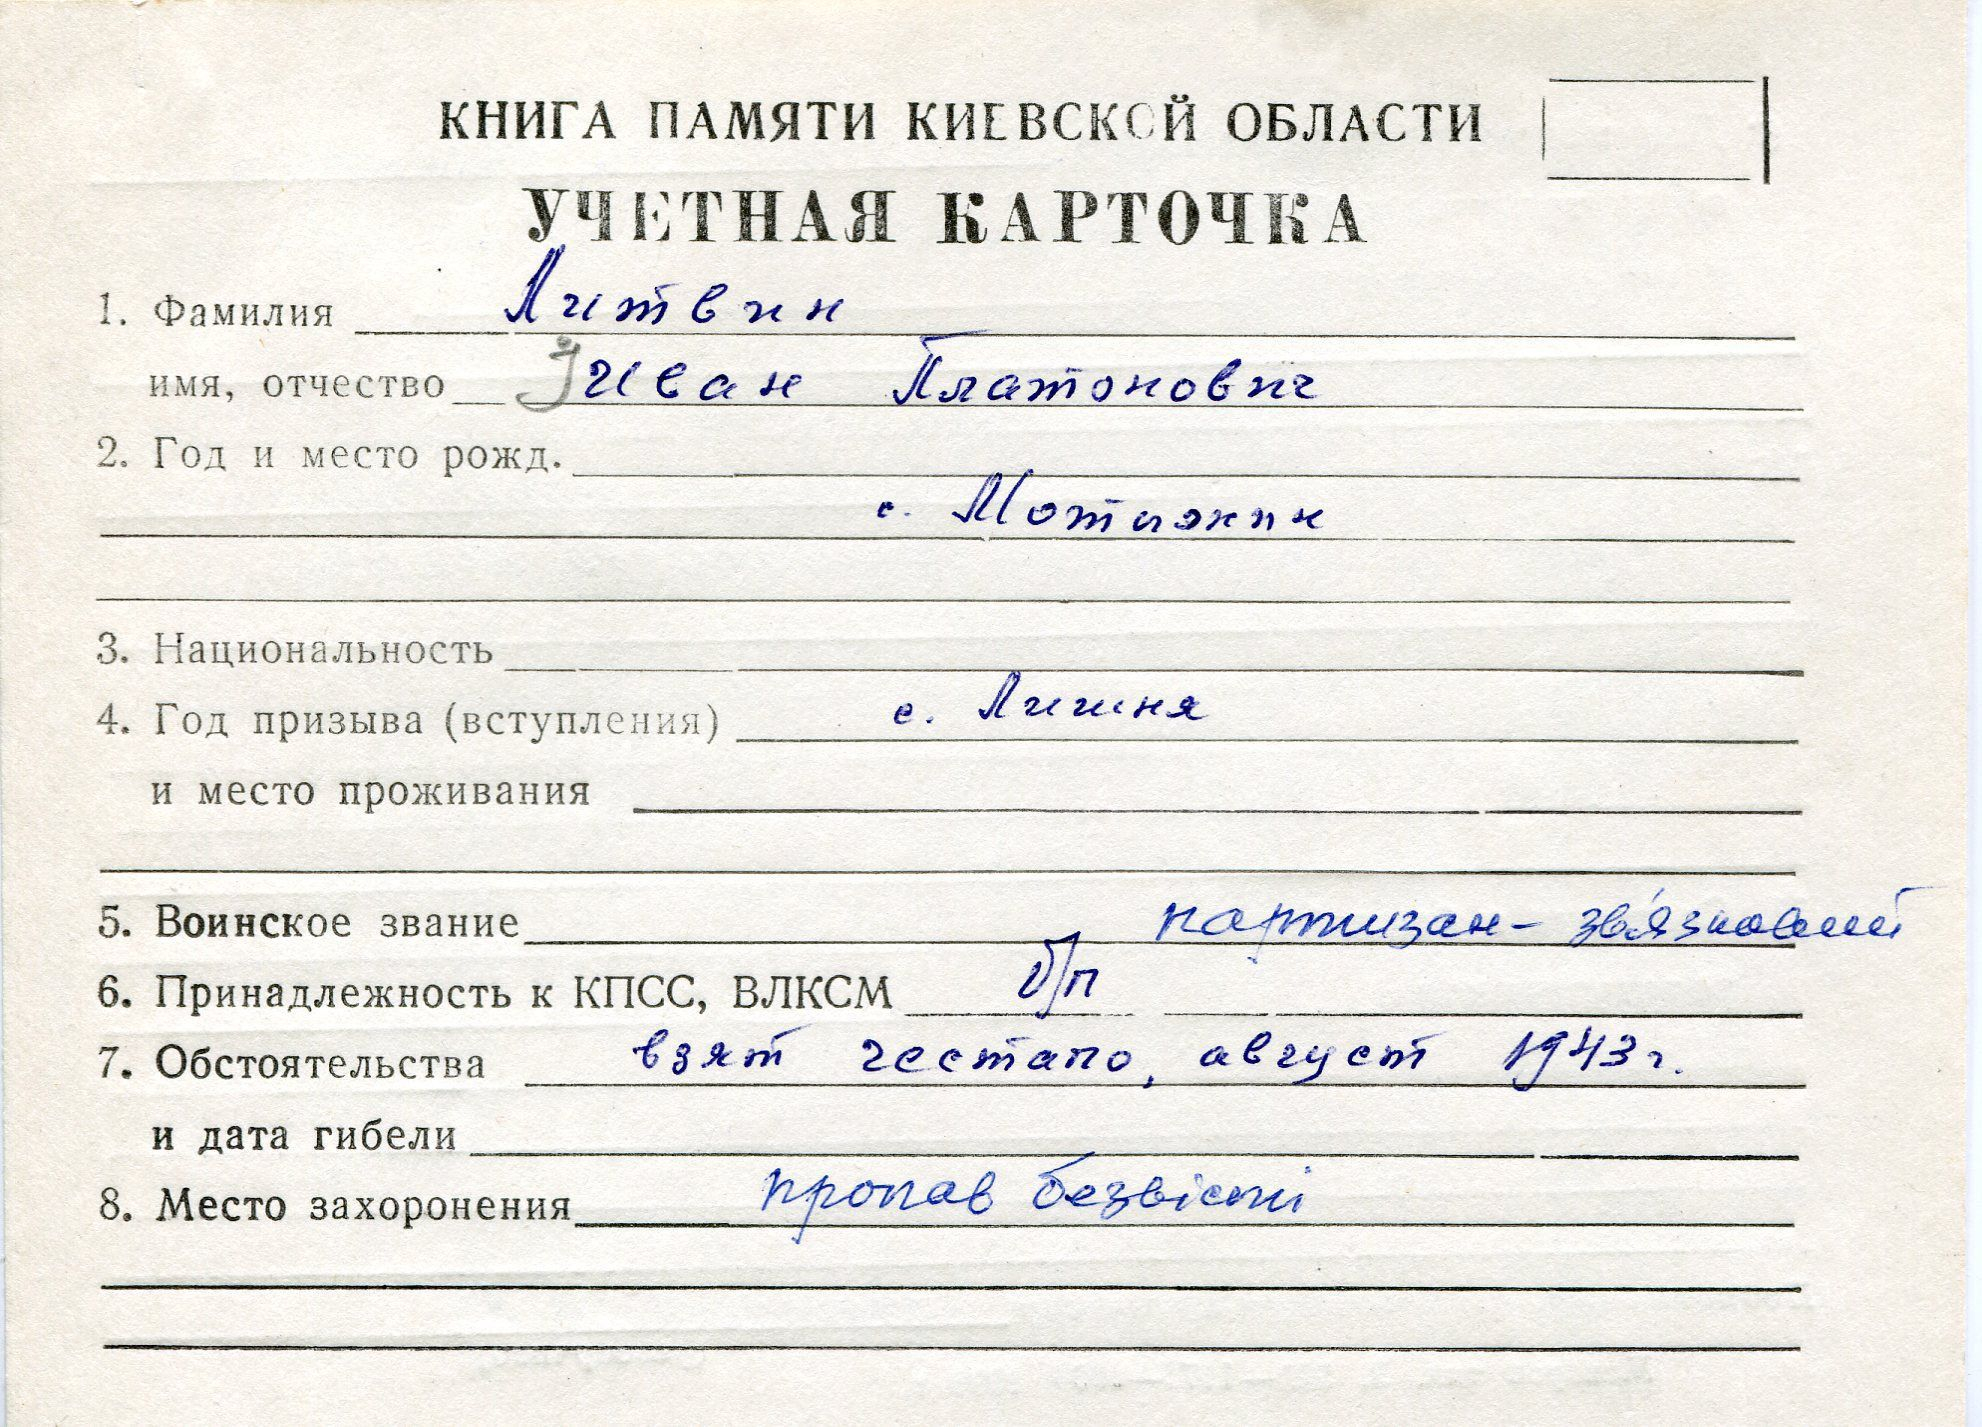 КНИГА ПАМЯТИ КИЕВСКОЙ ОБЛАСТИ
УЧЕТНАЯ КАРТОЧКА
1. Фамилия Литвин
имя, отчество Иван Платонович
2. Год и место рожд.
с. Мотыжин
3. Национальность
4. Год призыва (вступления) с. Личня
и место проживания
5. Воинское звание партизан - зв'язковий
6. Принадлежность к КПСС, ВЛКСМ б/п
7. Обстоятельства взят гестапо, август 1943 г.
и дата гибели
8. Место захоронения пропав безвісти